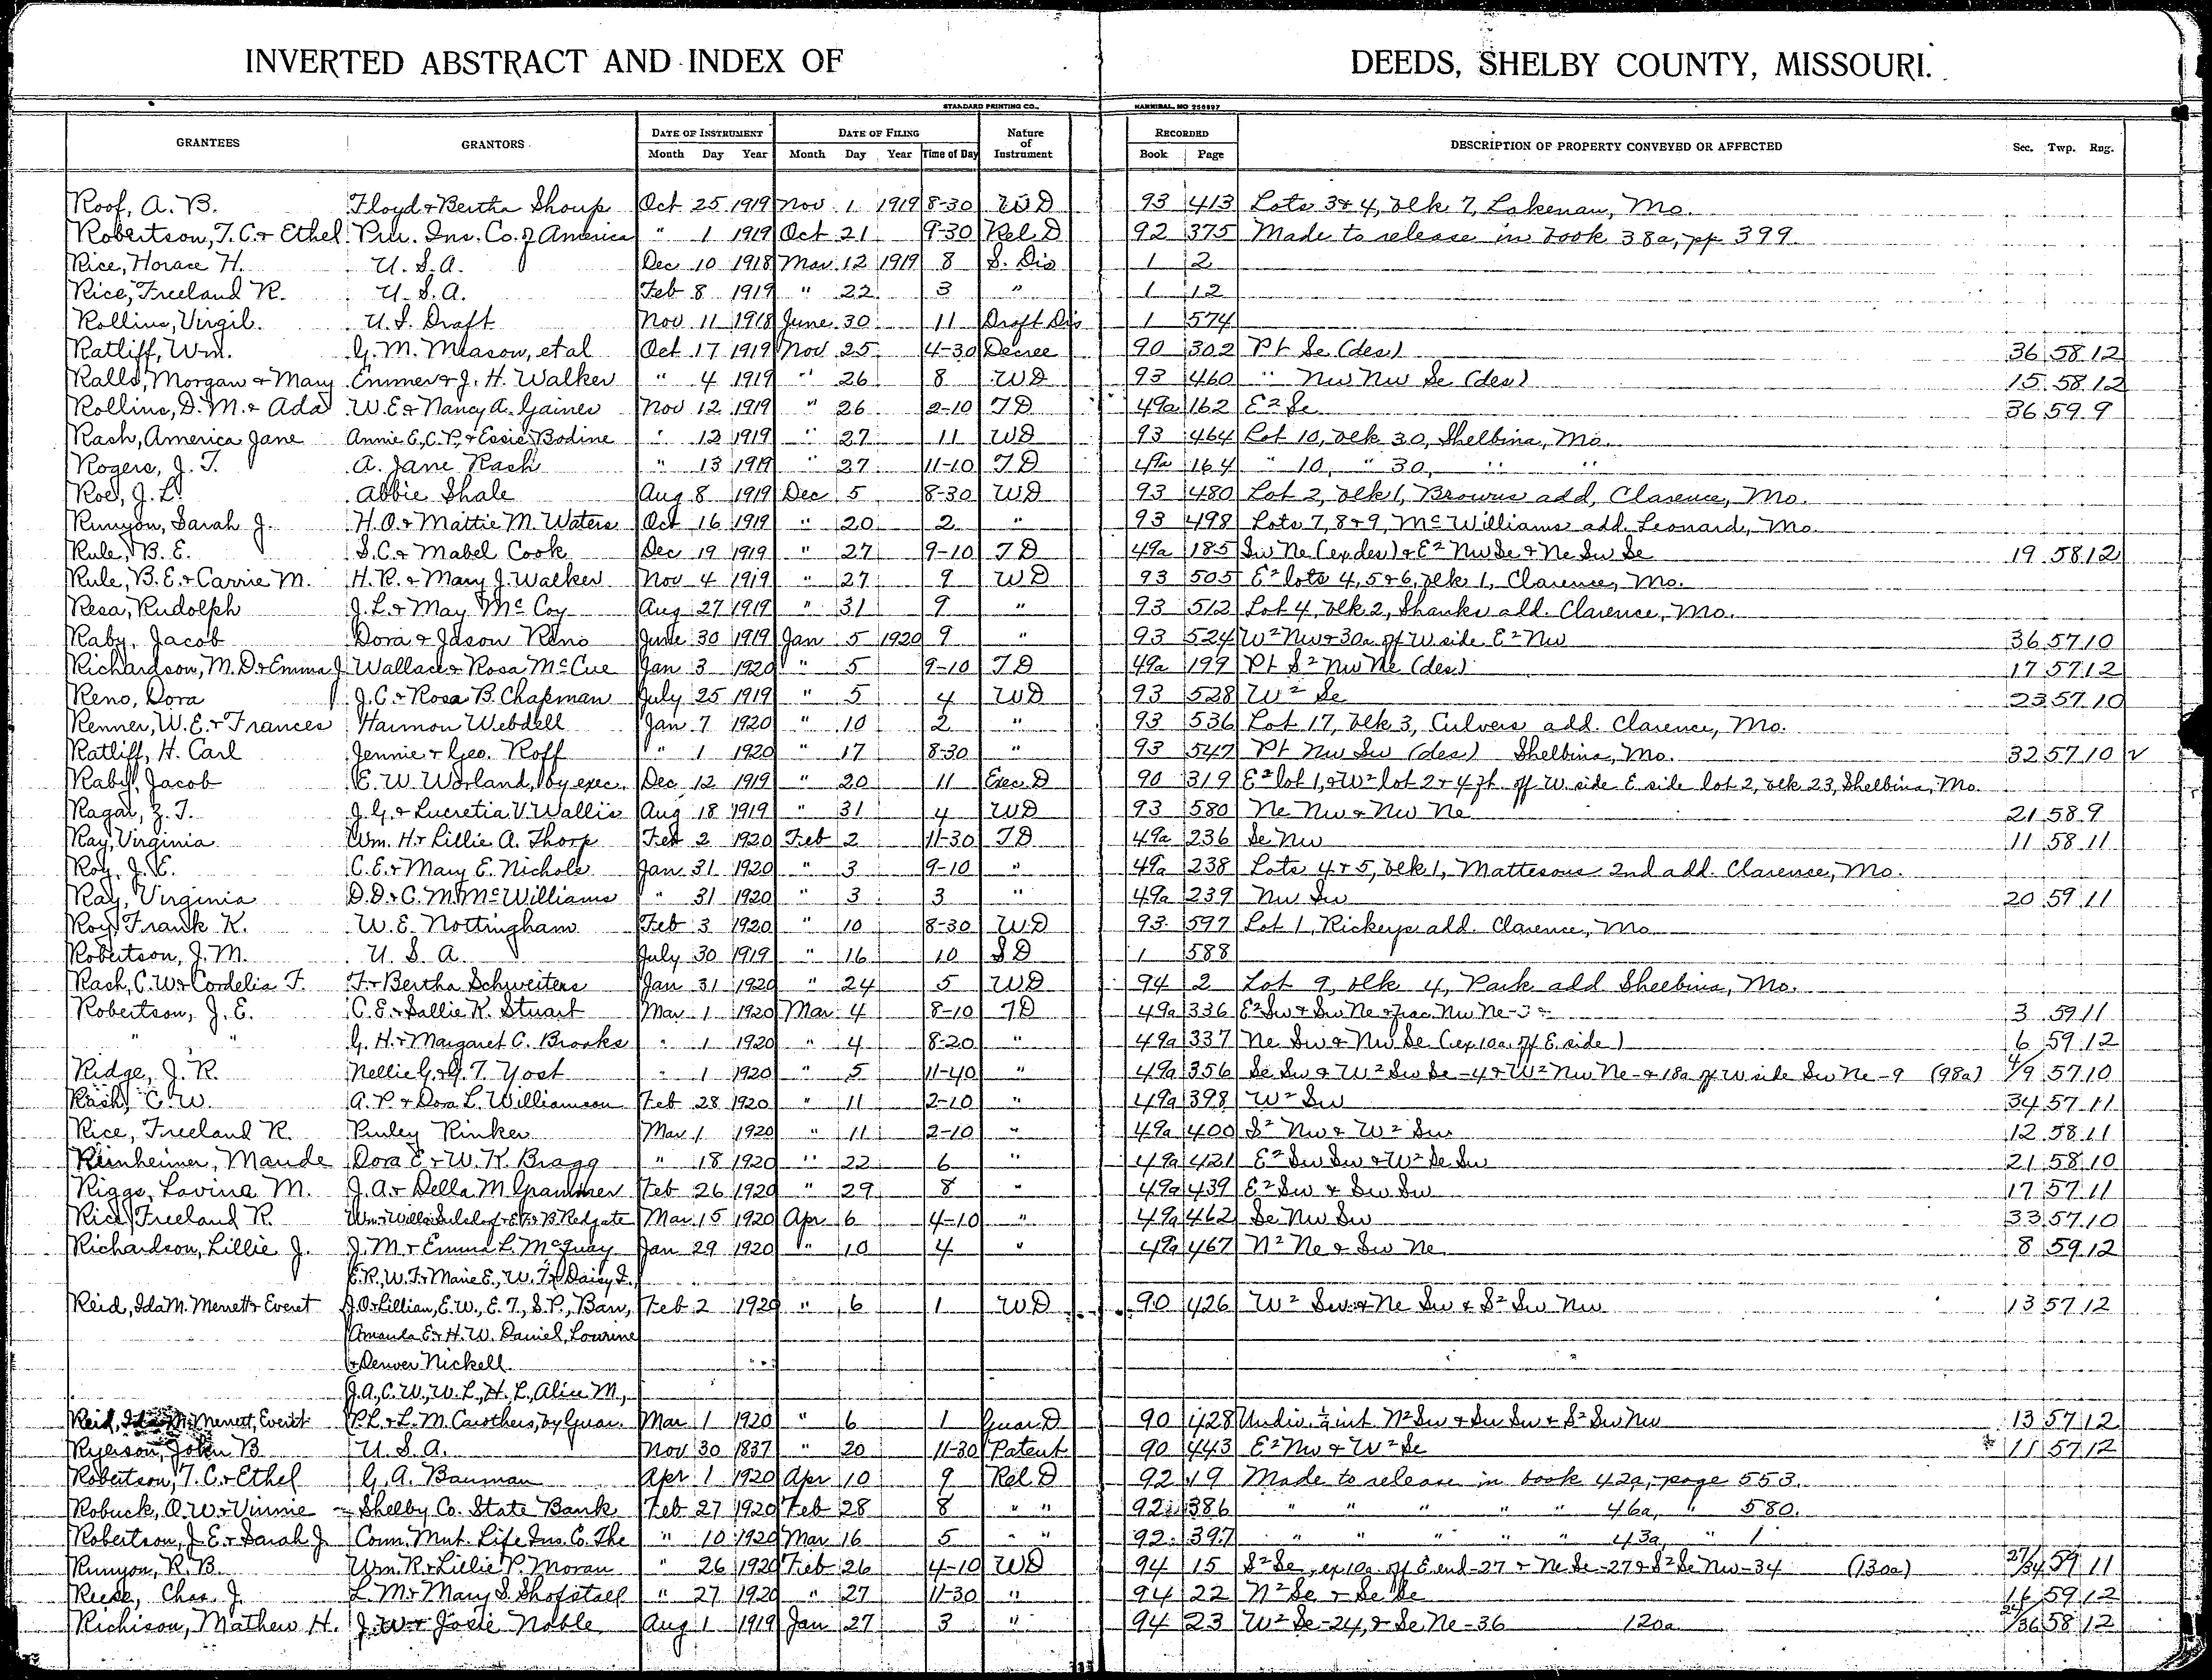 INVERTED ABSTRACT AND INDEX OF DEEDS, SHELBY COUNTY, MISSOURI.
STANDARD PRINTING CO., HANNIBAL, MO 256897
GRANTEES GRANTORS DATE OF INSTRUMENT DATE OF FILING Nature of Instrument RECORDED DESCRIPTION OF PROPERTY CONVEYED OR AFFECTED Sec. Twp. Rng.
Month Day Year Month Day Year Time of Day Book Page
Roof, A. B. Floyd & Bertha Shoup Oct 25 1919 Nov 1 1919 8-30 WD 93 413 Lots 3 & 4, blk 7, Lakenan, Mo.
Robertson, T. C. & Ethel Pru. Ins. Co. of America " 1 1919 Oct 21 9-30 Rel D 92 375 Made to release in book 38a, pp 399
Rice, Horace H. U. S. A. Dec 10 1918 Mar 12 1919 8 S. Dis 1 2
Rice, Freeland R. U. S. A. Feb 8 1919 " 22 3 " 1 12
Rollins, Virgil U. S. Draft Nov 11 1918 June 30 11 Draft Dis 1 574
Ratliff, Wm. G. M. Meason, et al Oct 17 1919 Nov 25 4-30 Decree 90 302 Pt Se (des) 36 58 12
Ralls, Morgan & Mary Emmer & J. H. Walker " 4 1919 " 26 8 WD 93 460 " Nw Nw Se (des) 15 58 12
Rollins, D. M. & Ada W. E. & Nancy A. Gaines Nov 12 1919 " 26 2-10 TD 49a 162 E² Se 36 59 9
Rash, America Jane Annie E, C. P. & Essie Bodine " 12 1919 " 27 11 WD 93 464 Lot 10, blk 30, Shelbina, Mo.
Rogers, J. T. A. Jane Rash " 13 1919 " 27 11-10 TD 49a 164 " 10, " 30, " "
Roe, J. L. Abbie Shale Aug 8 1919 Dec 5 8-30 WD 93 480 Lot 2, blk 1, Browns add, Clarence, Mo.
Runyon, Sarah J. H. O. & Mattie M. Waters Oct 16 1919 " 20 2 " 93 498 Lots 7, 8 & 9, McWilliams add. Leonard, Mo.
Rule, B. E. S. C. & Mabel Cook Dec 19 1919 " 27 9-10 TD 49a 185 Sw Ne (ex des) & E² Nw Se & Ne Sw Se 19 58 12
Rule, B. E. & Carrie M. H. R. & Mary J. Walker Nov 4 1919 " 27 9 WD 93 505 E² lots 4, 5 & 6, blk 1, Clarence, Mo.
Resa, Rudolph J. L. & May McCoy Aug 27 1919 " 31 9 " 93 512 Lot 4, blk 2, Shanks add. Clarence, Mo.
Raby, Jacob Dora & Jason Reno June 30 1919 Jan 5 1920 9 " 93 524 W² Nw & 30a off W side E² Nw 36 57 10
Richardson, M. D. & Emma J. Wallace & Rosa McCue Jan 3 1920 " 5 9-10 TD 49a 199 Pt S² Nw Ne (des) 17 57 12
Reno, Dora J. C. & Rosa B. Chapman July 25 1919 " 5 4 WD 93 528 W² Se 23 57 10
Renner, W. E. & Frances Harmon Webdell Jan 7 1920 " 10 2 " 93 536 Lot 17, blk 3, Culvers add. Clarence, Mo.
Ratliff, H. Carl Jennie & Geo. Roff " 1 1920 " 17 8-30 " 93 547 Pt Nw Sw (des) Shelbina, Mo. 32 57 10 ✓
Raby, Jacob E. W. Worland, by exec. Dec 12 1919 " 20 11 Exec. D 90 319 E² lot 1, & W² lot 2 & 4 ft. off W. side E side lot 2, blk 23, Shelbina, Mo.
Ragar, Z. T. J. G. & Lucretia V. Wallis Aug 18 1919 " 31 4 WD 93 580 Ne Nw & Nw Ne 21 58 9
Ray, Virginia Wm. H. & Lillie A. Thorp Feb 2 1920 Feb 2 11-30 TD 49a 236 Se Nw 11 58 11
Roy, J. E. C. E. & Mary E. Nichols Jan 31 1920 " 3 9-10 " 49a 238 Lots 4 & 5, blk 1, Mattesons 2nd add. Clarence, Mo.
Ray, Virginia D. D. & C. M. McWilliams " 31 1920 " 3 3 " 49a 239 Nw Sw 20 59 11
Roy, Frank K. W. E. Nottingham Feb 3 1920 " 10 8-30 WD 93 597 Lot 1, Rickeys add. Clarence, Mo
Robertson, J. M. U. S. A. July 30 1919 " 16 10 SD 1 588
Rash, C. W. & Cordelia F. F. & Bertha Schweiters Jan 31 1920 " 24 5 WD 94 2 Lot 9, blk 4, Park add Shelbina, Mo.
Robertson, J. E. C. E. & Sallie K. Stuart Mar 1 1920 Mar 4 8-10 TD 49a 336 E² Sw & Sw Ne & frac Nw Ne 3 59 11
" " G. H. & Margaret C. Brooks " 1 1920 " 4 8-20 " 49a 337 Ne Sw & Nw Se (ex 10a. off E. side) 6 59 12
Ridge, J. R. Nellie G. & G. T. Yost " 1 1920 " 5 11-40 " 49a 356 Se Sw & W² Sw Se -4 & W² Nw Ne - & 18a off W side Sw Ne -9 (98a) 4/9 57 10
Rash, C. W. A. P. & Dora L. Williamson Feb 28 1920 " 11 2-10 " 49a 398 W² Sw 34 57 11
Rice, Freeland R. Purley Rinker Mar 1 1920 " 11 2-10 " 49a 400 S² Nw & W² Sw 12 58 11
Reinheimer, Maude Dora E. & W. K. Bragg " 18 1920 " 22 6 " 49a 421 E² Sw Sw & W² Se Sw 21 58 10
Riggs, Lovina M. J. A. & Della M. Grammer Feb 26 1920 " 29 8 " 49a 439 E² Sw & Sw Sw 17 57 11
Rice, Freeland R. & B Redgate Mar 15 1920 Apr 6 4-10 " 49a 462 Se Nw Sw 33 57 10
Richardson, Lillie J. J. M. & Emma L. McQuay Jan 29 1920 " 10 4 " 49a 467 N² Ne & Sw Ne 8 59 12
E. R., W. F. & Marie E., W. T. & Daisy I.
Reid, Ida M. Merrett & Everet J. O. & Lillian, E. W., E. T., S. P., Ban, Feb 2 1920 " 6 1 WD 90 426 W² Sw & Ne Sw & S² Sw Nw 13 57 12
Amanda E. & H. W. Daniel, Lourine
& Denver Nickell
J. A., C. W., W. L., H. L., Alice M.,
Reid, Ida M. Merrett, Everet P. L. & L. M. Carothers, by Guar. Mar 1 1920 " 6 1 Guar D 90 428 Undiv. int N² Sw & Sw Sw & S² Sw Nw 13 57 12
Ryerson, John B U. S. A. Nov 30 1837 " 20 11-30 Patent 90 443 E² Nw & W² Se 11 57 12
Robertson, T. C. & Ethel G. A. Bauman Apr 1 1920 Apr 10 9 Rel D 92 19 Made to release in book 42a, page 553.
Robuck, O. W. & Vinnie Shelby Co. State Bank Feb 27 1920 Feb 28 8 " " 92 386 " " " " " 46a, " 580.
Robertson, J. E. & Sarah J. Conn. Mut. Life Ins. Co. The " 10 1920 Mar 16 5 " " 92 397 " " " " " 43a, " 1
Runyon, R. B. Wm. R. & Lillie P. Moran " 26 1920 Feb 26 4-10 WD 94 15 S² Se, ex 10a. off E. end -27 & Ne Se -27 & S² Se Nw -34 (130a) 27/34 59 11
Reese, Chas. J. L. M. & Mary S. Shofstall " 27 1920 " 27 11-30 " 94 22 N² Se & Se Se 16 59 12
Richison, Mathew H. J. W. & Josie Noble Aug 1 1919 Jan 27 3 " 94 23 W² Se -24, & Se Ne -36 120a 24/36 58 12